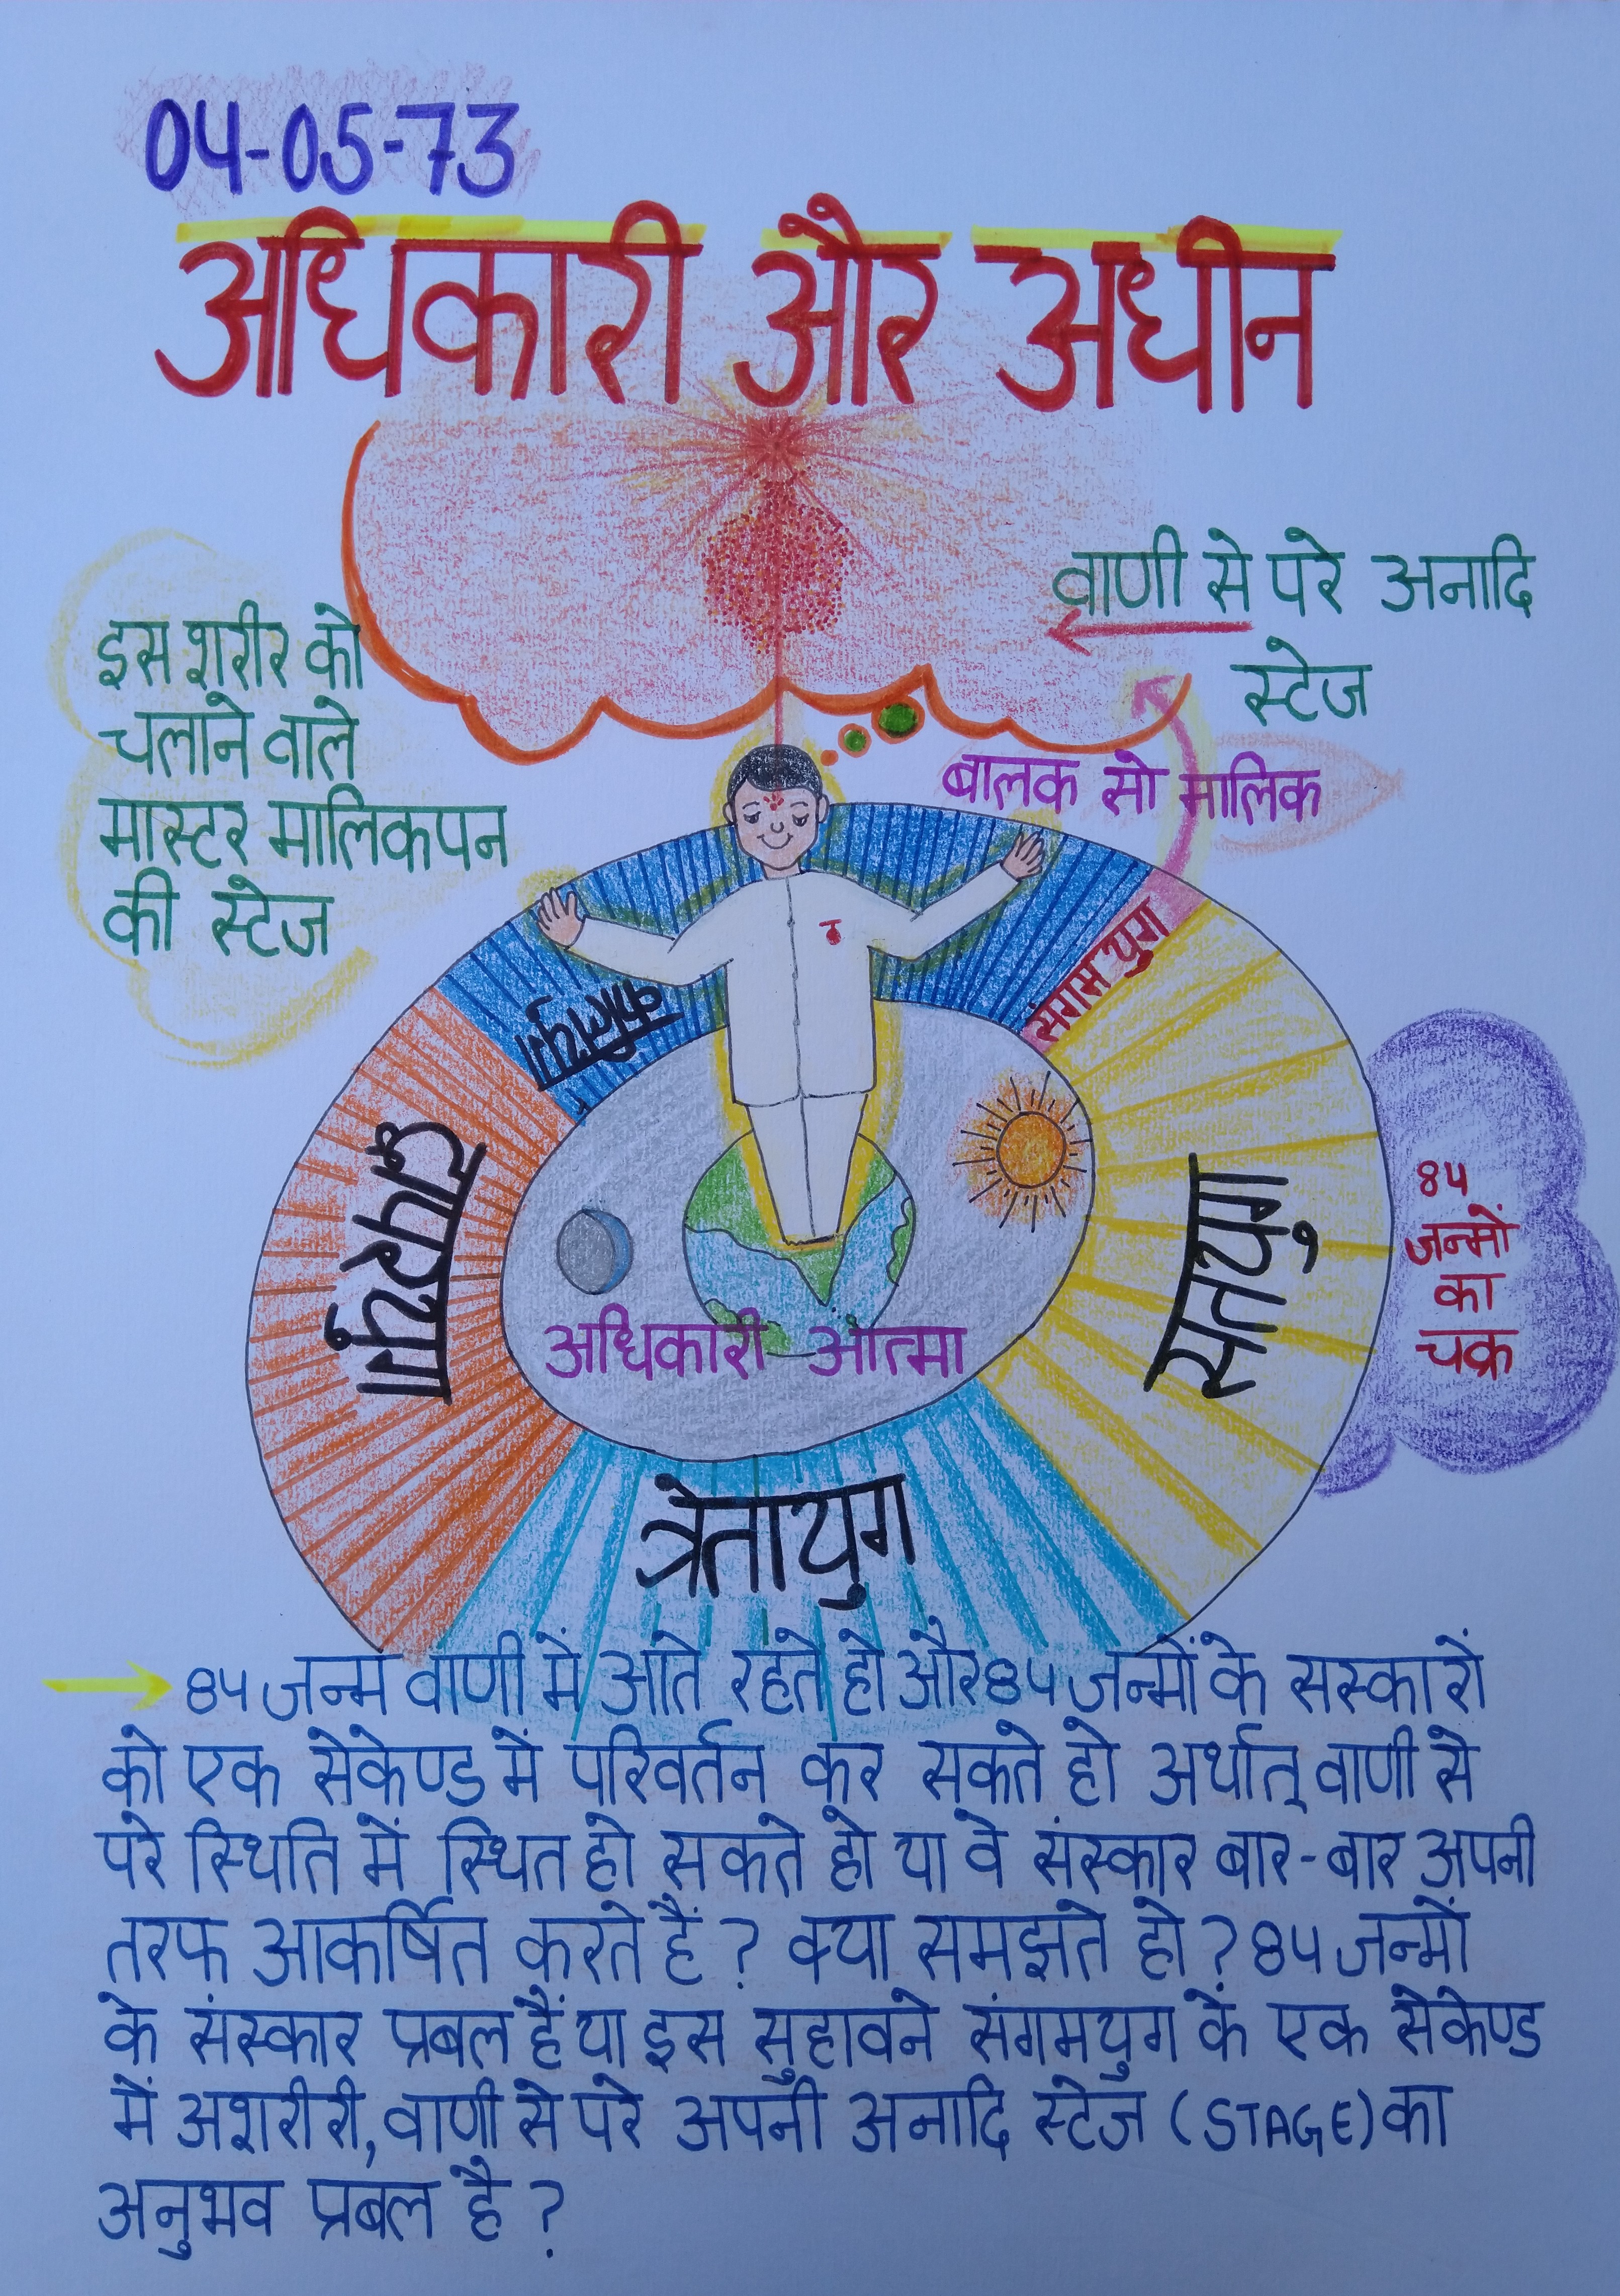 04-05-73
अधिकारी और अधीन
वाणी से परे अनादि
स्टेज
इस शरीर को
चलाने वाले
मास्टर मालिकपन
की स्टेज
बालक सो मालिक
संगमयुग
कलियुग
द्वापरयुग
सतयुग
84
जन्मों
का
चक्र
अधिकारी आत्मा
त्रेतायुग
84 जन्म वाणी में आते रहते हो और 84 जन्मों के सस्कारों
को एक सेकेण्ड में परिवर्तन कर सकते हो अर्थात् वाणी से
परे स्थिति में स्थित हो सकते हो या वे संस्कार बार-बार अपनी
तरफ आकर्षित करते हैं ? क्या समझते हो ? 84 जन्मों
के संस्कार प्रबल हैं या इस सुहावने संगमयुग के एक सेकेण्ड
में अशरीरी, वाणी से परे अपनी अनादि स्टेज (STAGE) का
अनुभव प्रबल है ?